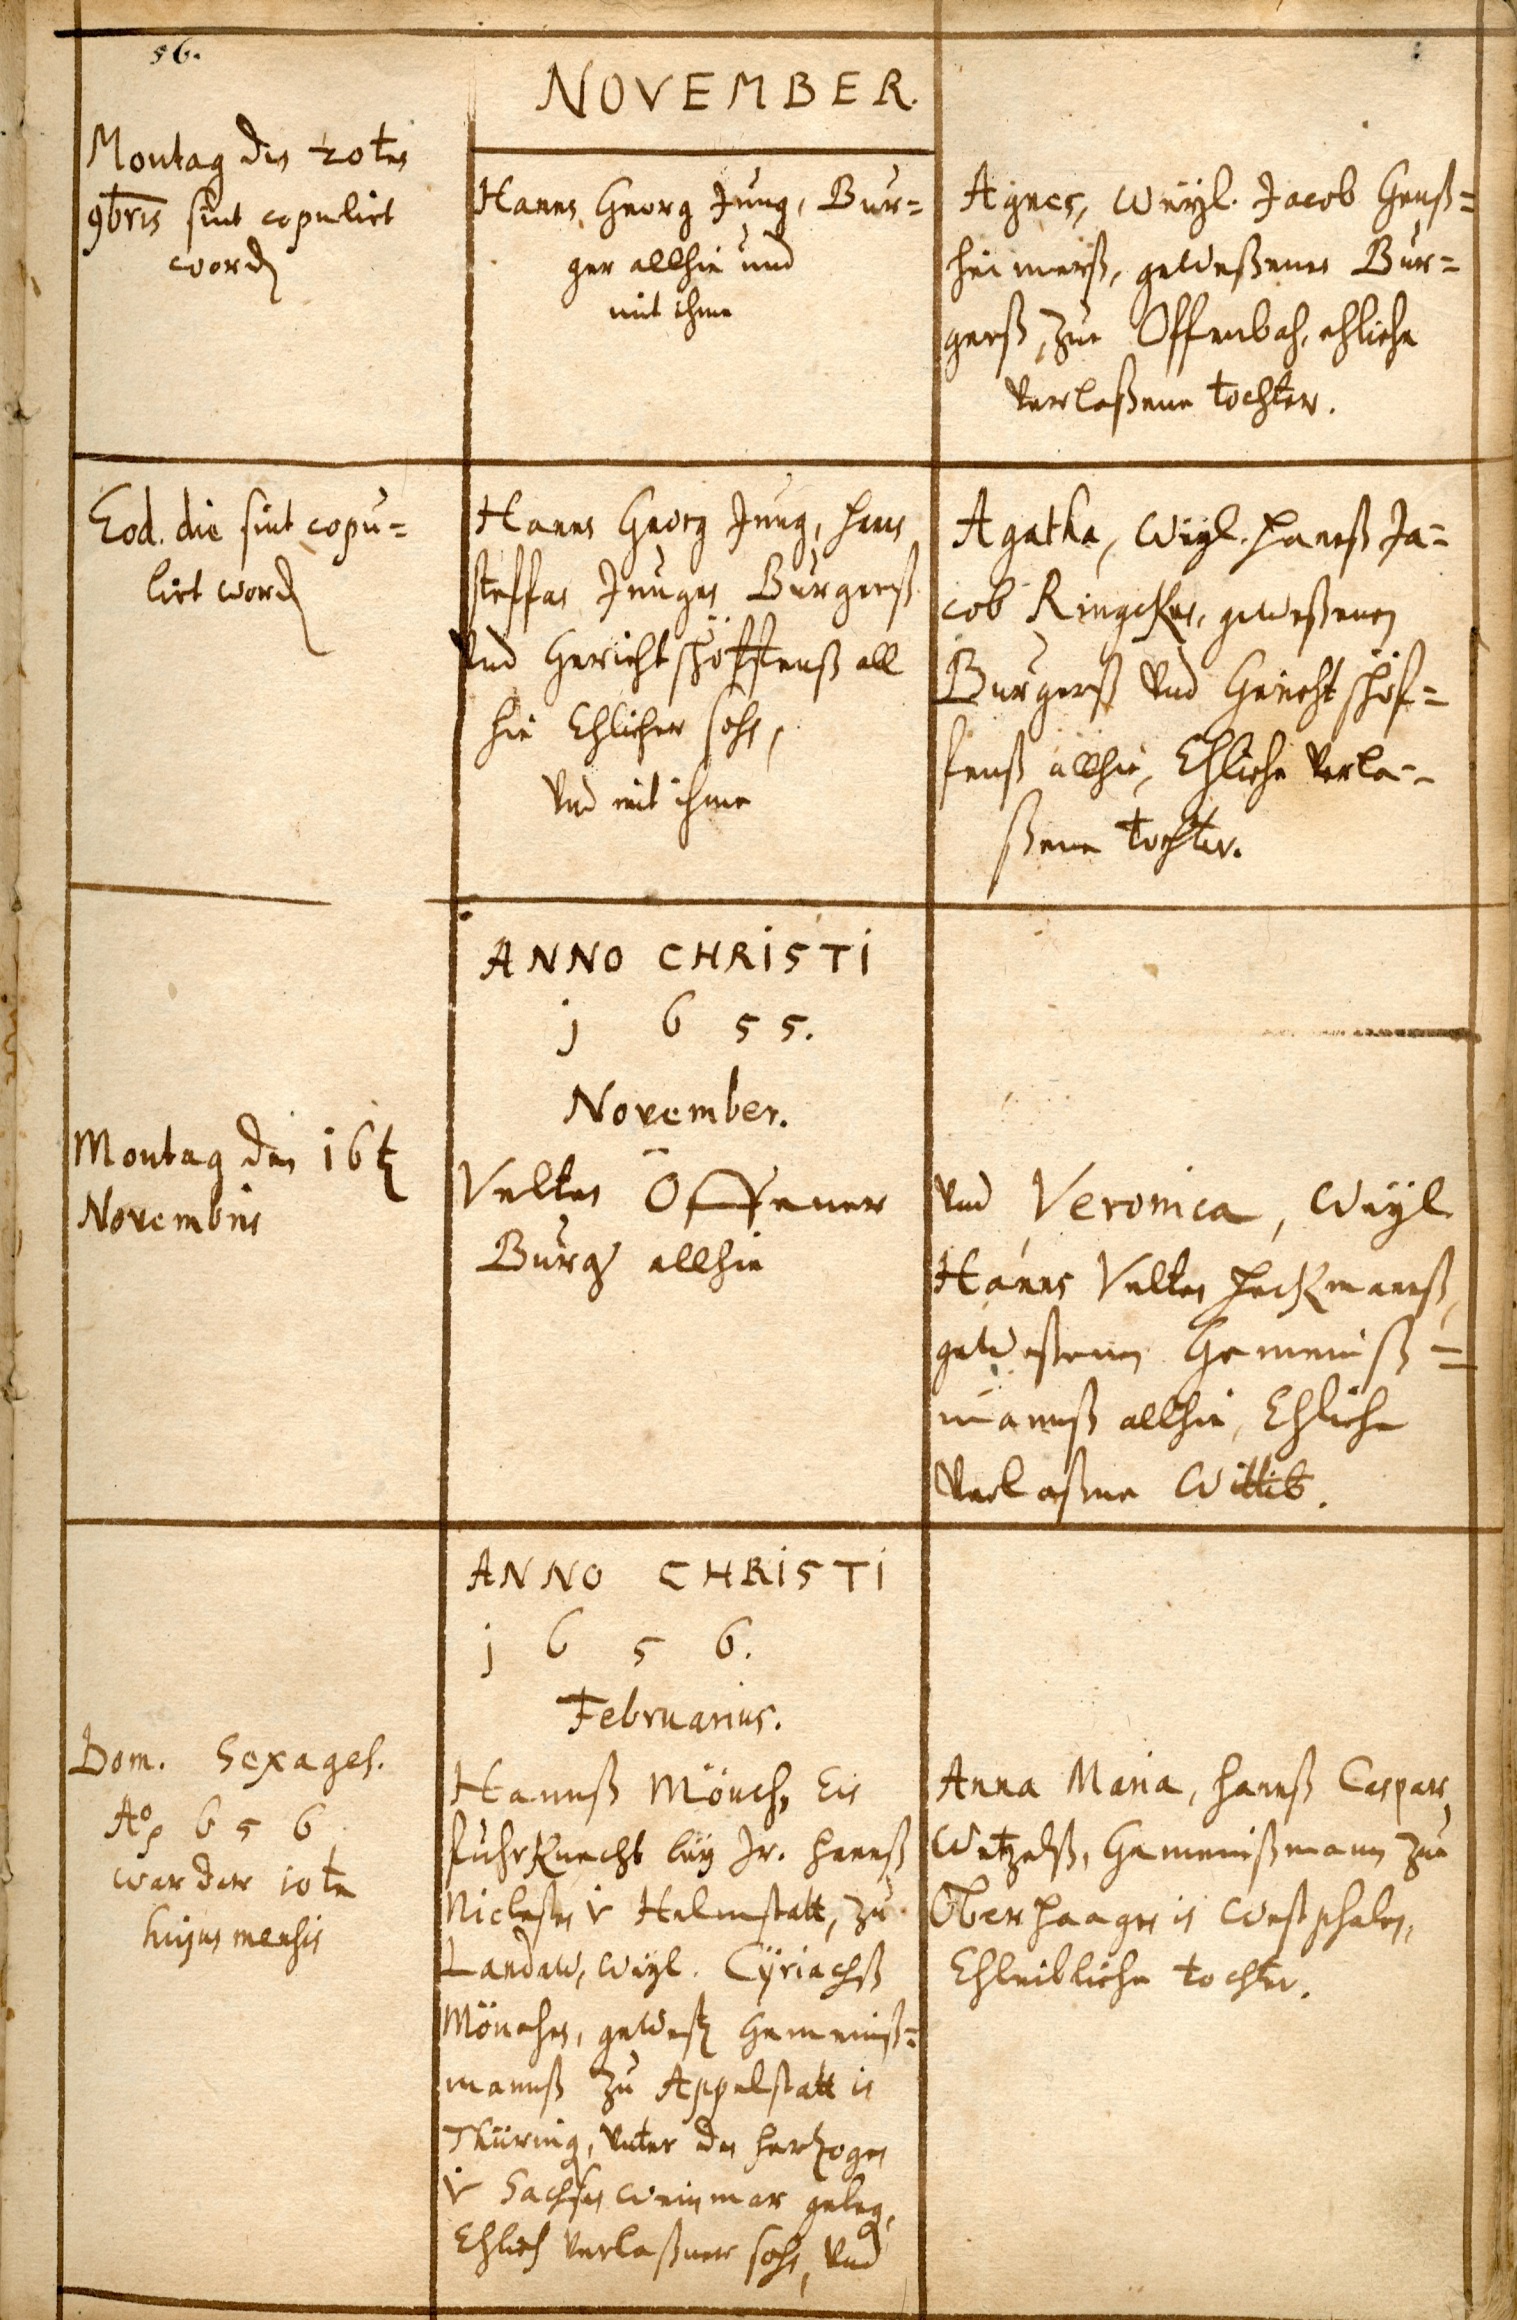 56.
NOVEMBER.
Montag den 20ten
9bris sint copulirt
word
Hanns Georg Jung, Bur=
ger allhie und
mit ihme
Agnes, weÿl. Jacob Genß=
heimerß, geweßenen Bur=
gerß, zue Offenbach, ehliche
verlaßene tochter.
Eod. die sint copu=
lirt word
Hanns Georg Jung, Hans
steffan Junges Burgerß
vnd Gerichtschöffenß all
hie Ehlicher sohn,
vnd mit ihme
Agatha, weÿl. Hannß Ja=
cob Ringckes, geweßenen
Burgerß vnd Gerichtschöf=
fenß allhie, Ehliche verla=
ßene tochter.
ANNO CHRISTI
j 6 5 5.
November.
Montag den 16t
Novembris
Velten Öffener
Burg allhie
vnd Veronica, weÿl
Hanns Velten Heckmanß,
geweßenen Gemeinß=
manß allhie, Ehliche
verlaßne Wittib.
ANNO CHRISTI
j 6 5 6.
Februarius.
Dom. Sexages.
Ao 6 5 6
war der 10te
hujus mensis
Hannß Mönch, Ein
fuhrknecht beÿ Jr. Hannß
Niclaßen v Helmstatt, zu
Landaw, weÿl. Cÿriachß
Mönches, geweß Gemeinß=
mannß zu Appelstatt in
Thüring, vnter den Hertzogen
v Sachsen Weinmar geleg,
Ehlich verlaßner sohn, vnd
Anna Maria, Hannß Caspars
Wetzelß, Gemeinßmann zue
Oberhaagen in Westphalen,
Ehleibliche tochter.